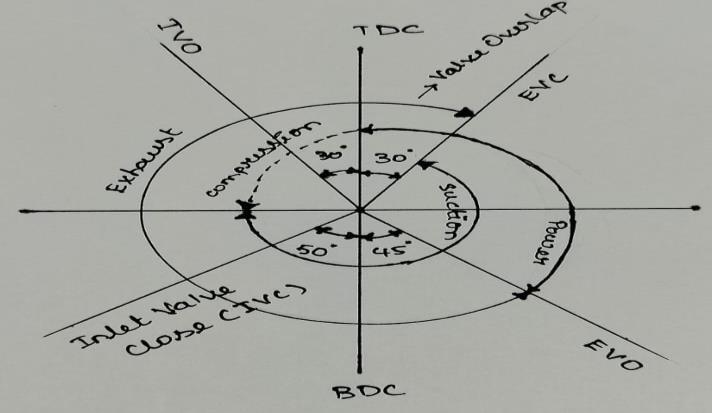 IVO
TDC
→ Valve Overlap
EVC
Exhaust
compression
30°
30°
suction
Power
50°
45°
Inlet Valve
Close (IVC)
EVO
BDC